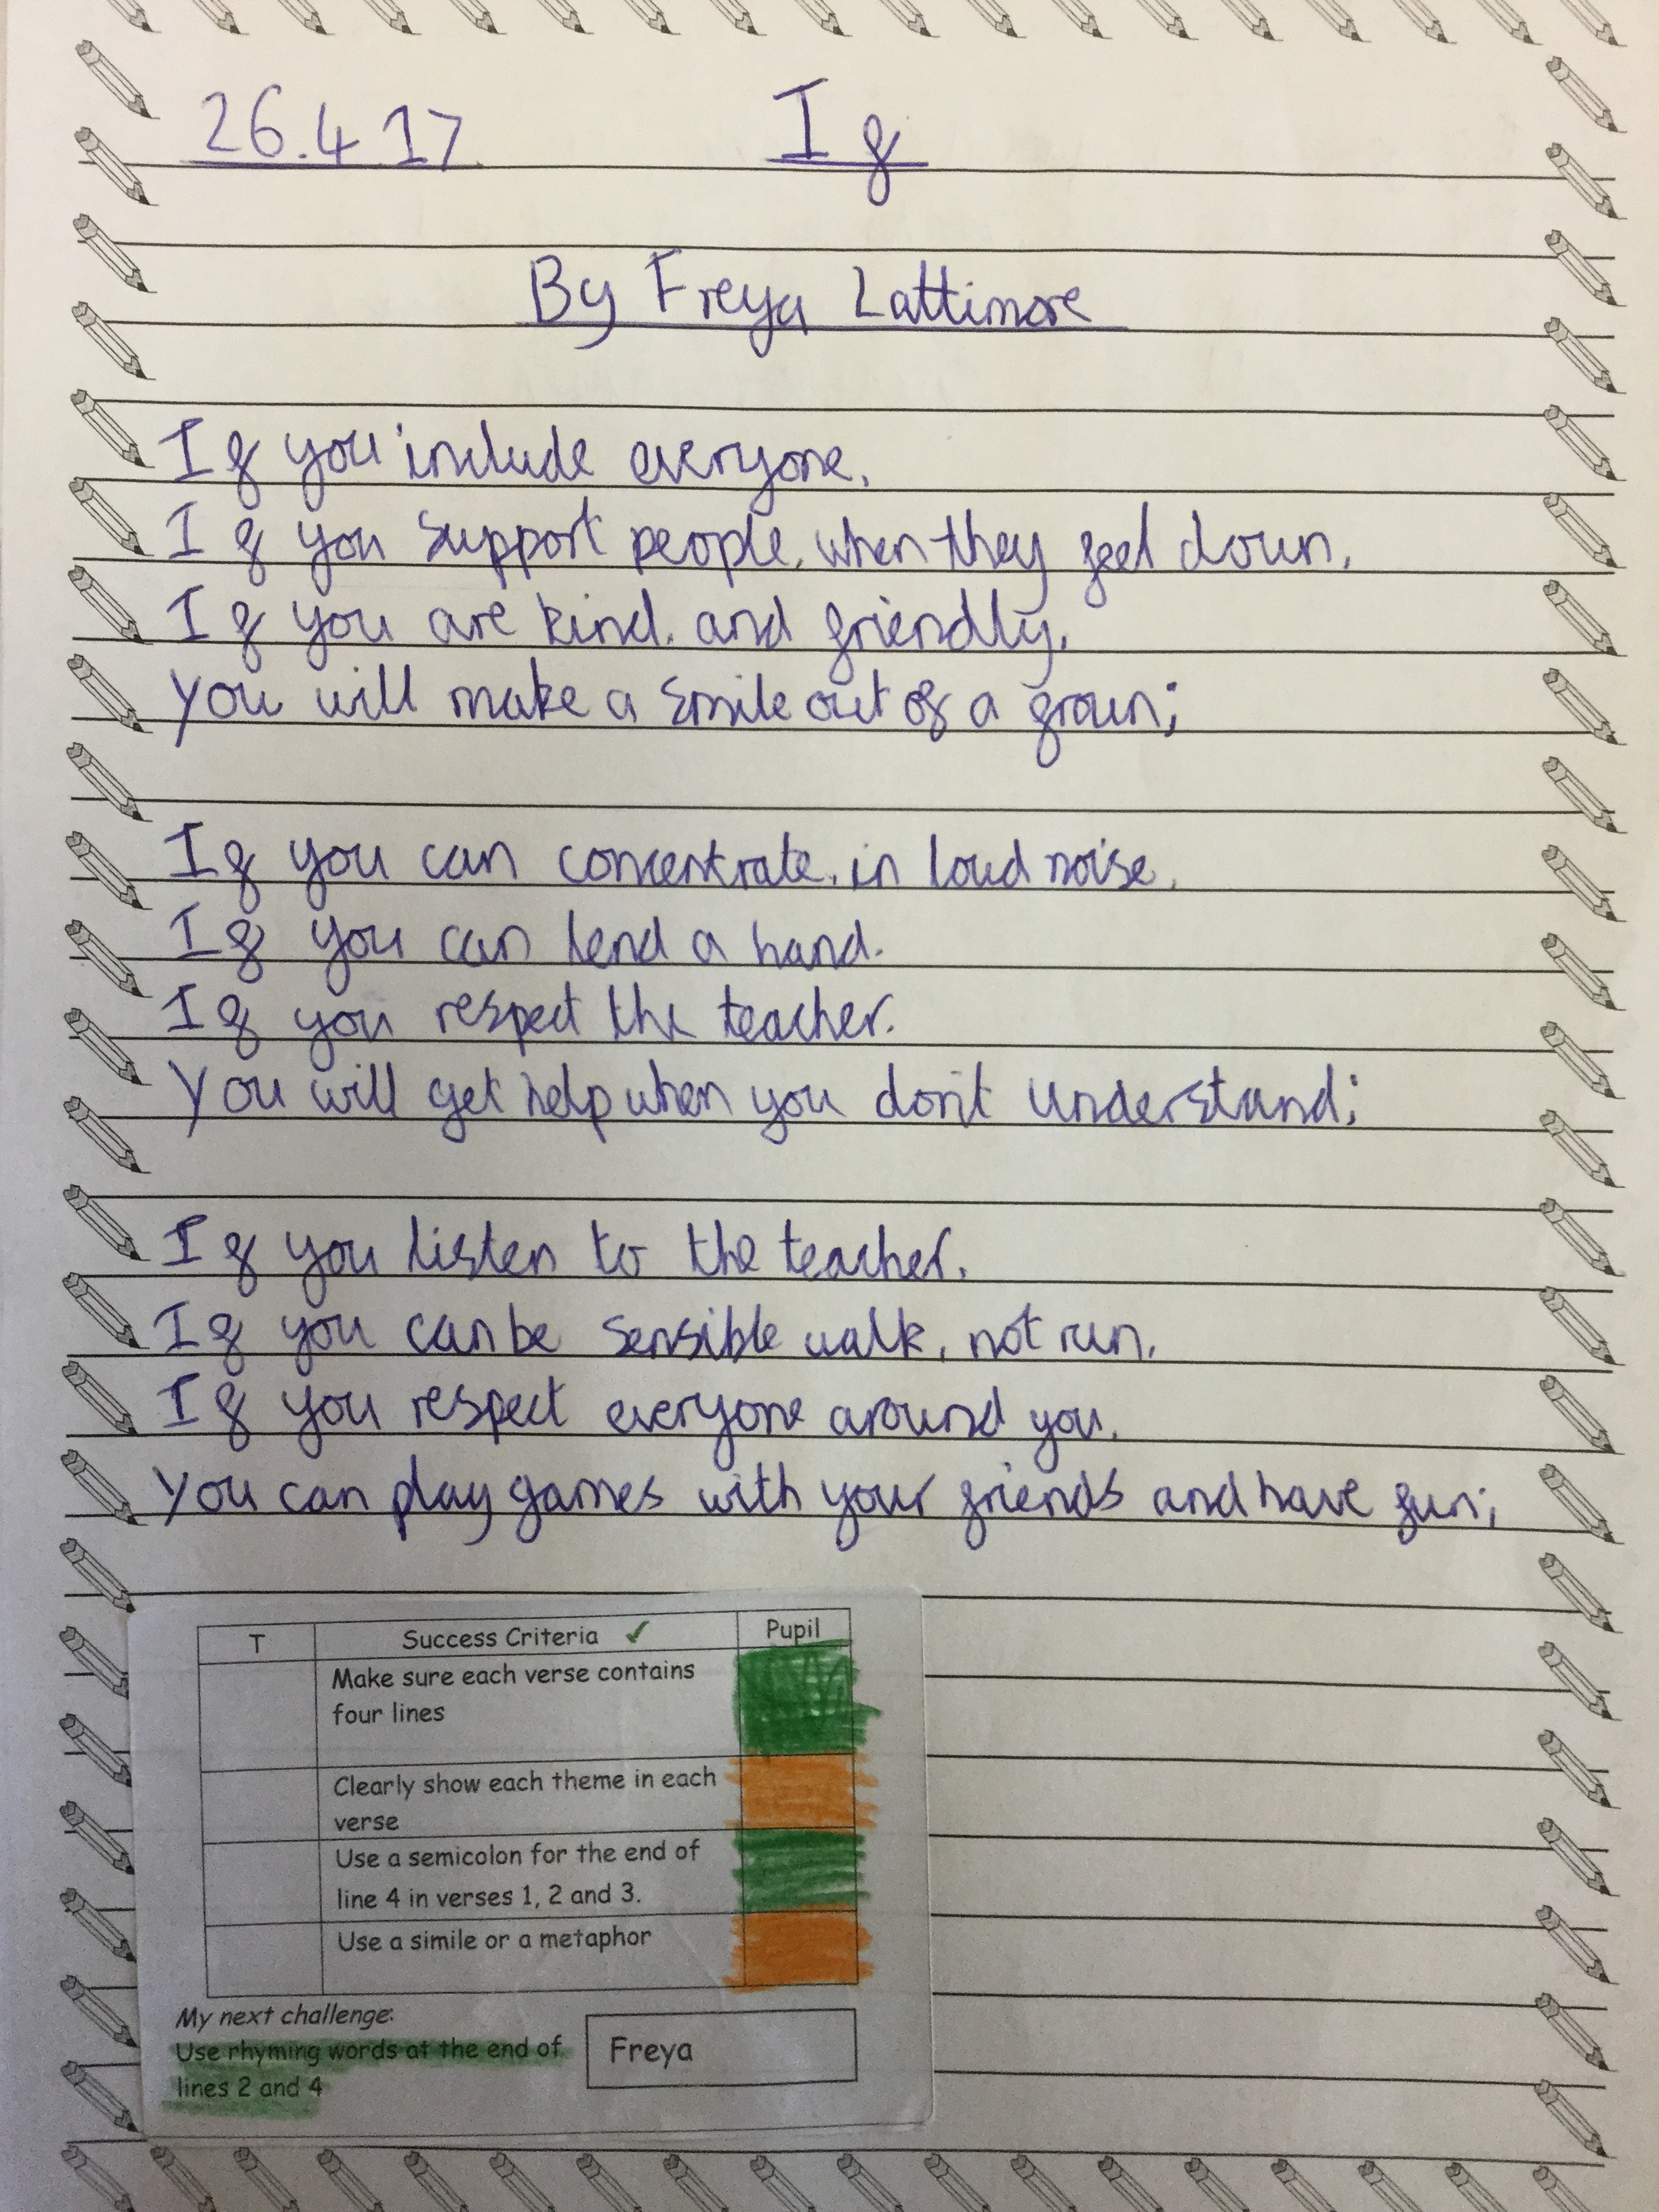 26.4.17 If
By Freya Lattimore
If you include everyone,
If you support people, when they feel down,
If you are kind, and friendly,
You will make a smile out of a froun;
If you can concentrate, in loud noise,
If you can lend a hand.
If you respect the teacher.
You will get help when you don't understand;
If you listen to the teacher,
If you can be sensible walk, not run,
If you respect everyone around you,
You can play games with your friends and have fun;
T Success Criteria ✓ Pupil
Make sure each verse contains
four lines
Clearly show each theme in each
verse
Use a semicolon for the end of
line 4 in verses 1, 2 and 3.
Use a simile or a metaphor
My next challenge:
Use rhyming words at the end of
lines 2 and 4
Freya